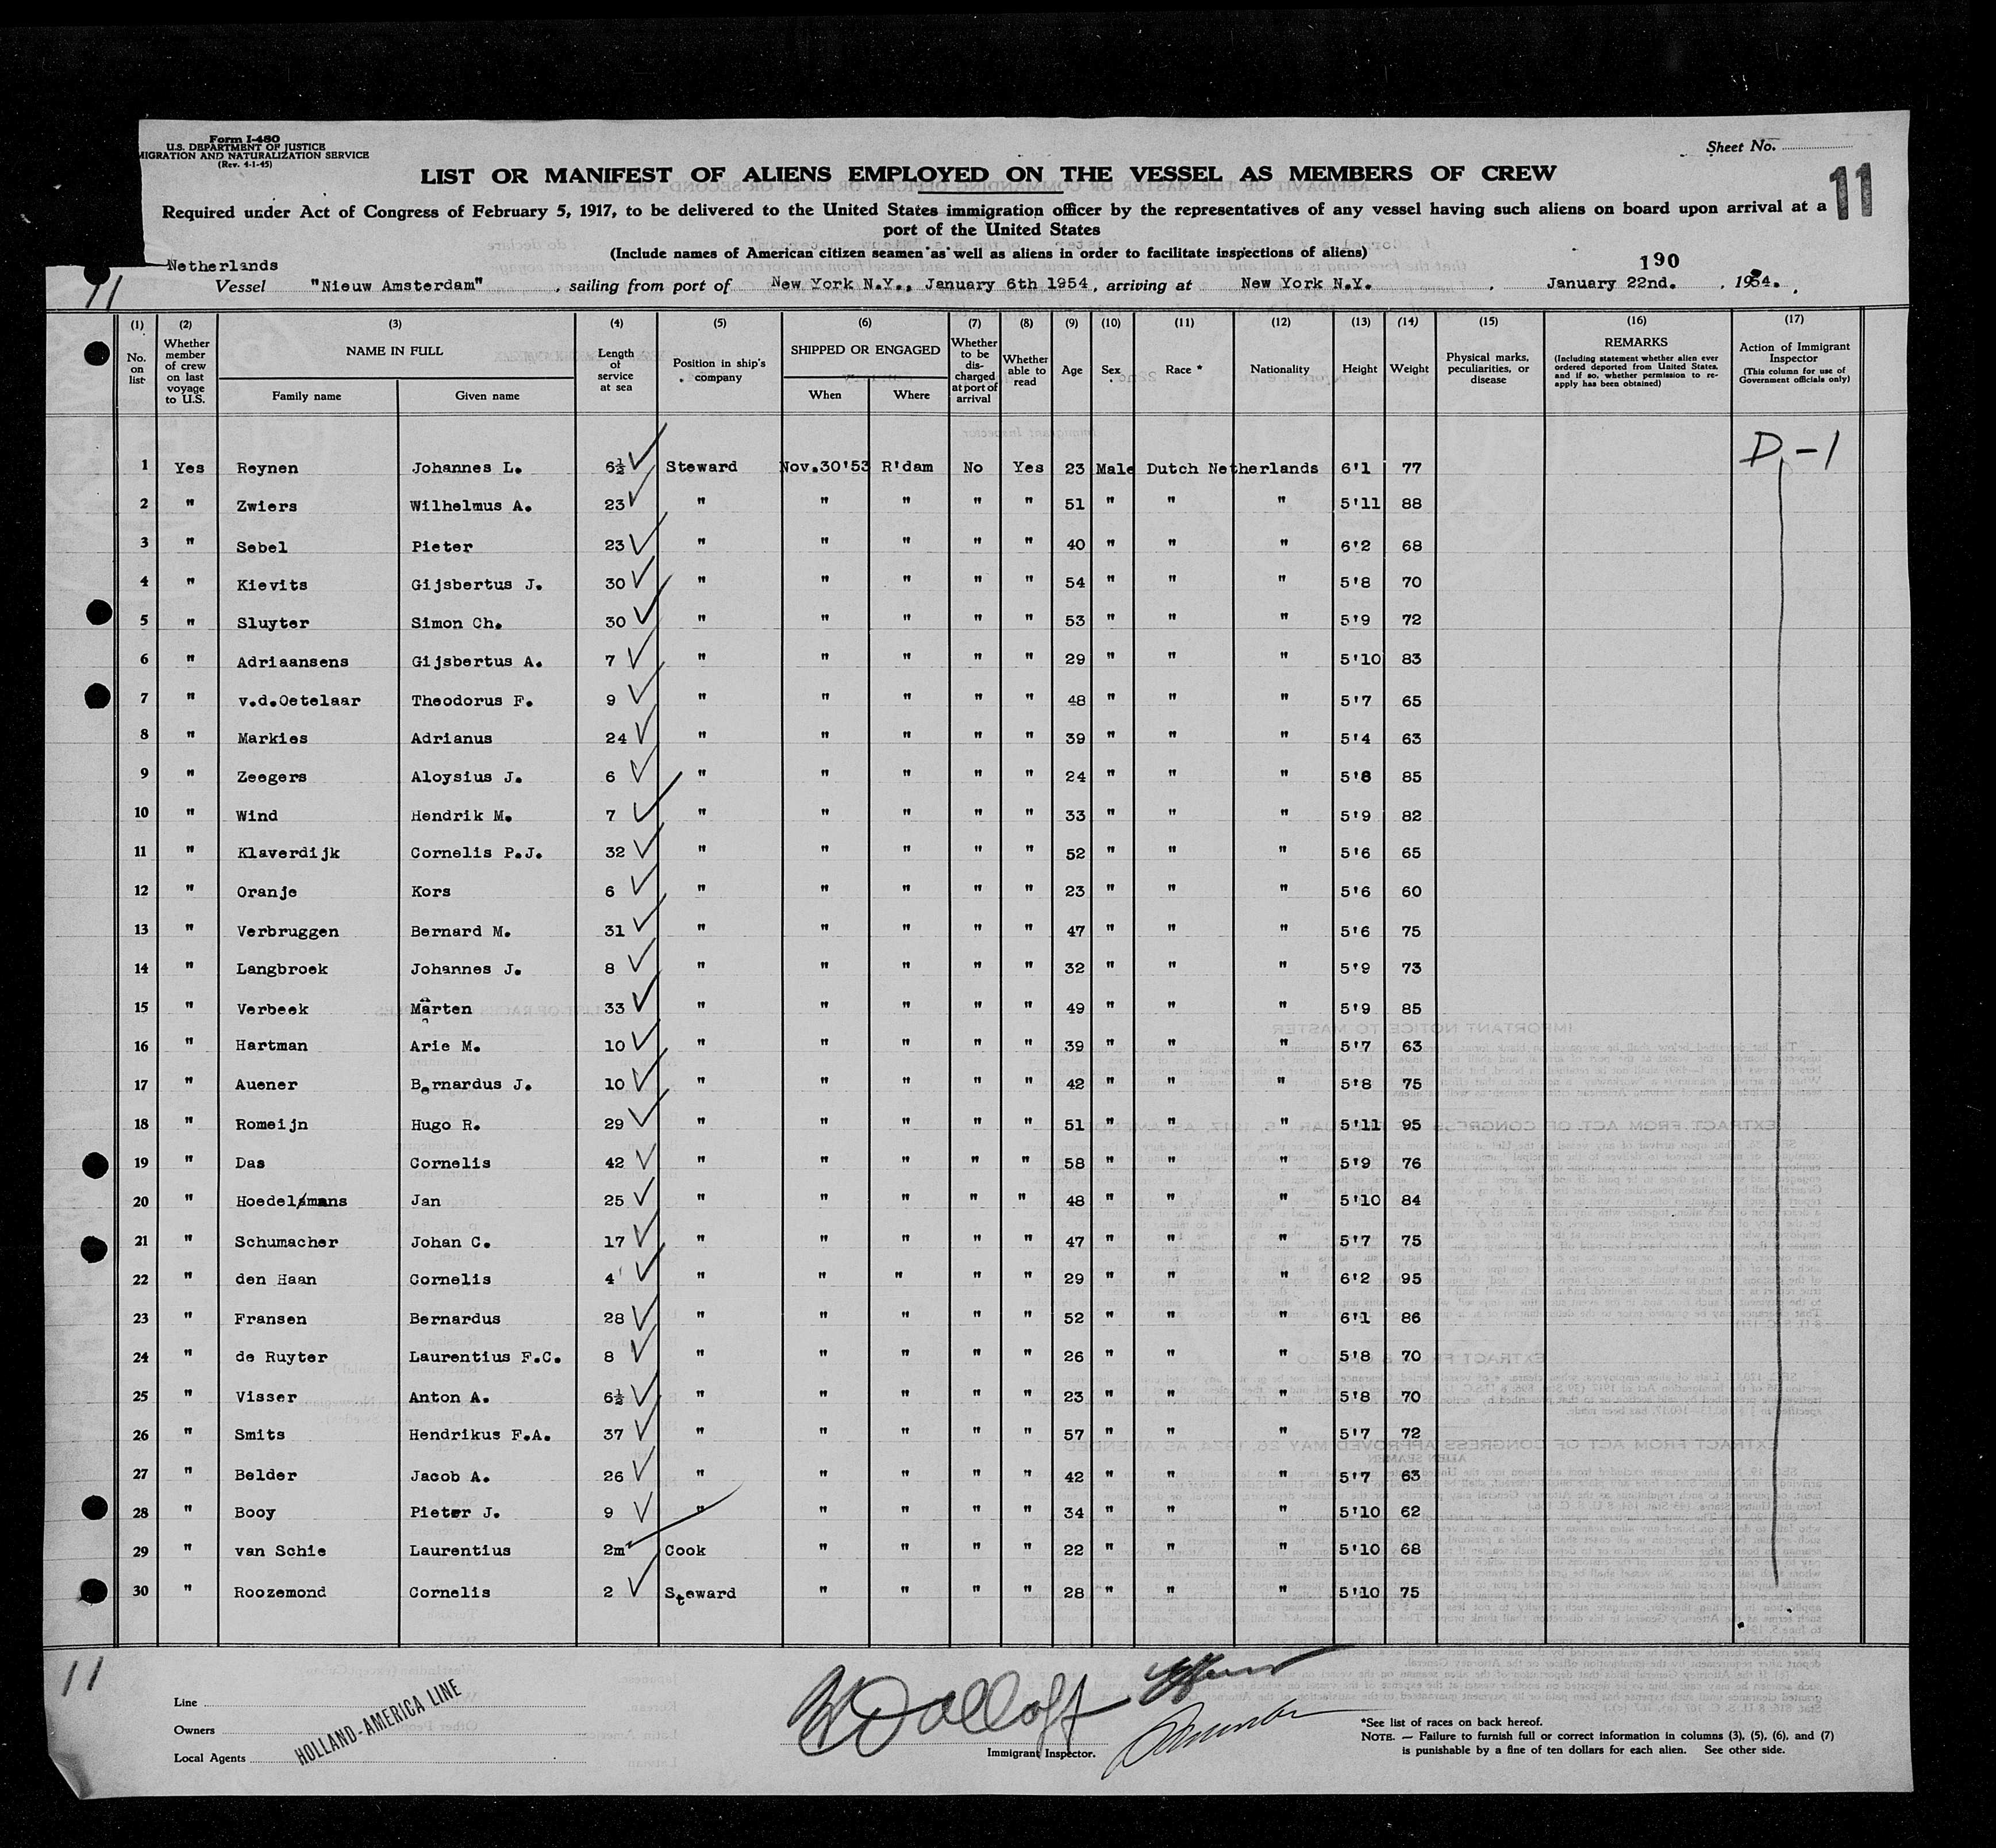 Form I-480
U.S. DEPARTMENT OF JUSTICE
MIGRATION AND NATURALIZATION SERVICE
(Rev. 4-1-45)
Sheet No.
11
LIST OR MANIFEST OF ALIENS EMPLOYED ON THE VESSEL AS MEMBERS OF CREW
Required under Act of Congress of February 5, 1917, to be delivered to the United States immigration officer by the representatives of any vessel having such aliens on board upon arrival at a
port of the United States
(Include names of American citizen seamen as well as aliens in order to facilitate inspections of aliens)
190
Netherlands
11
Vessel "Nieuw Amsterdam", sailing from port of New York N.Y., January 6th 1954, arriving at New York N.Y., January 22nd., 1954.
(1) (2) (3) (4) (5) (6) (7) (8) (9) (10) (11) (12) (13) (14) (15) (16) (17)
No. on list
Whether member of crew on last voyage to U.S.
NAME IN FULL
Family name
Given name
Length of service at sea
Position in ship's company
SHIPPED OR ENGAGED
When
Where
Whether to be discharged at port of arrival
Whether able to read
Age
Sex
Race *
Nationality
Height
Weight
Physical marks, peculiarities, or disease
REMARKS
(Including statement whether alien ever ordered deported from United States, and if so, whether permission to re-apply has been obtained)
Action of Immigrant Inspector
(This column for use of Government officials only)
D-1
1 Yes Reynen Johannes L. 6½ Steward Nov.30'53 R'dam No Yes 23 Male Dutch Netherlands 6'1 77
2 " Zwiers Wilhelmus A. 23 " " " " " 51 " " " 5'11 88
3 " Sebel Pieter 23 " " " " " 40 " " " 6'2 68
4 " Kievits Gijsbertus J. 30 " " " " " 54 " " " 5'8 70
5 " Sluyter Simon Ch. 30 " " " " " 53 " " " 5'9 72
6 " Adriaansens Gijsbertus A. 7 " " " " " 29 " " " 5'10 83
7 " v.d.Oetelaar Theodorus F. 9 " " " " " 48 " " " 5'7 65
8 " Markies Adrianus 24 " " " " " 39 " " " 5'4 63
9 " Zeegers Aloysius J. 6 " " " " " 24 " " " 5'8 85
10 " Wind Hendrik M. 7 " " " " " 33 " " " 5'9 82
11 " Klaverdijk Cornelis P.J. 32 " " " " " 52 " " " 5'6 65
12 " Oranje Kors 6 " " " " " 23 " " " 5'6 60
13 " Verbruggen Bernard M. 31 " " " " " 47 " " " 5'6 75
14 " Langbroek Johannes J. 8 " " " " " 32 " " " 5'9 73
15 " Verbeek Marten 33 " " " " " 49 " " " 5'9 85
16 " Hartman Arie M. 10 " " " " " 39 " " " 5'7 63
17 " Auener Bernardus J. 10 " " " " " 42 " " " 5'8 75
18 " Romeijn Hugo R. 29 " " " " " 51 " " " 5'11 95
19 " Das Cornelis 42 " " " " " 58 " " " 5'9 76
20 " Hoedelmans Jan 25 " " " " " 48 " " " 5'10 84
21 " Schumacher Johan C. 17 " " " " " 47 " " " 5'7 75
22 " den Haan Cornelis 4 " " " " " 29 " " " 6'2 95
23 " Fransen Bernardus 28 " " " " " 52 " " " 6'1 86
24 " de Ruyter Laurentius F.C. 8 " " " " " 26 " " " 5'8 70
25 " Visser Anton A. 6½ " " " " " 23 " " " 5'8 70
26 " Smits Hendrikus F.A. 37 " " " " " 57 " " " 5'7 72
27 " Belder Jacob A. 26 " " " " " 42 " " " 5'7 63
28 " Booy Pieter J. 9 " " " " " 34 " " " 5'10 62
29 " van Schie Laurentius 2m Cook " " " " 22 " " " 5'10 68
30 " Roozemond Cornelis 2 Steward " " " " 28 " " " 5'10 75
11
Line
Owners
Local Agents
HOLLAND-AMERICA LINE
Immigrant Inspector.
*See list of races on back hereof.
NOTE. — Failure to furnish full or correct information in columns (3), (5), (6), and (7)
is punishable by a fine of ten dollars for each alien. See other side.